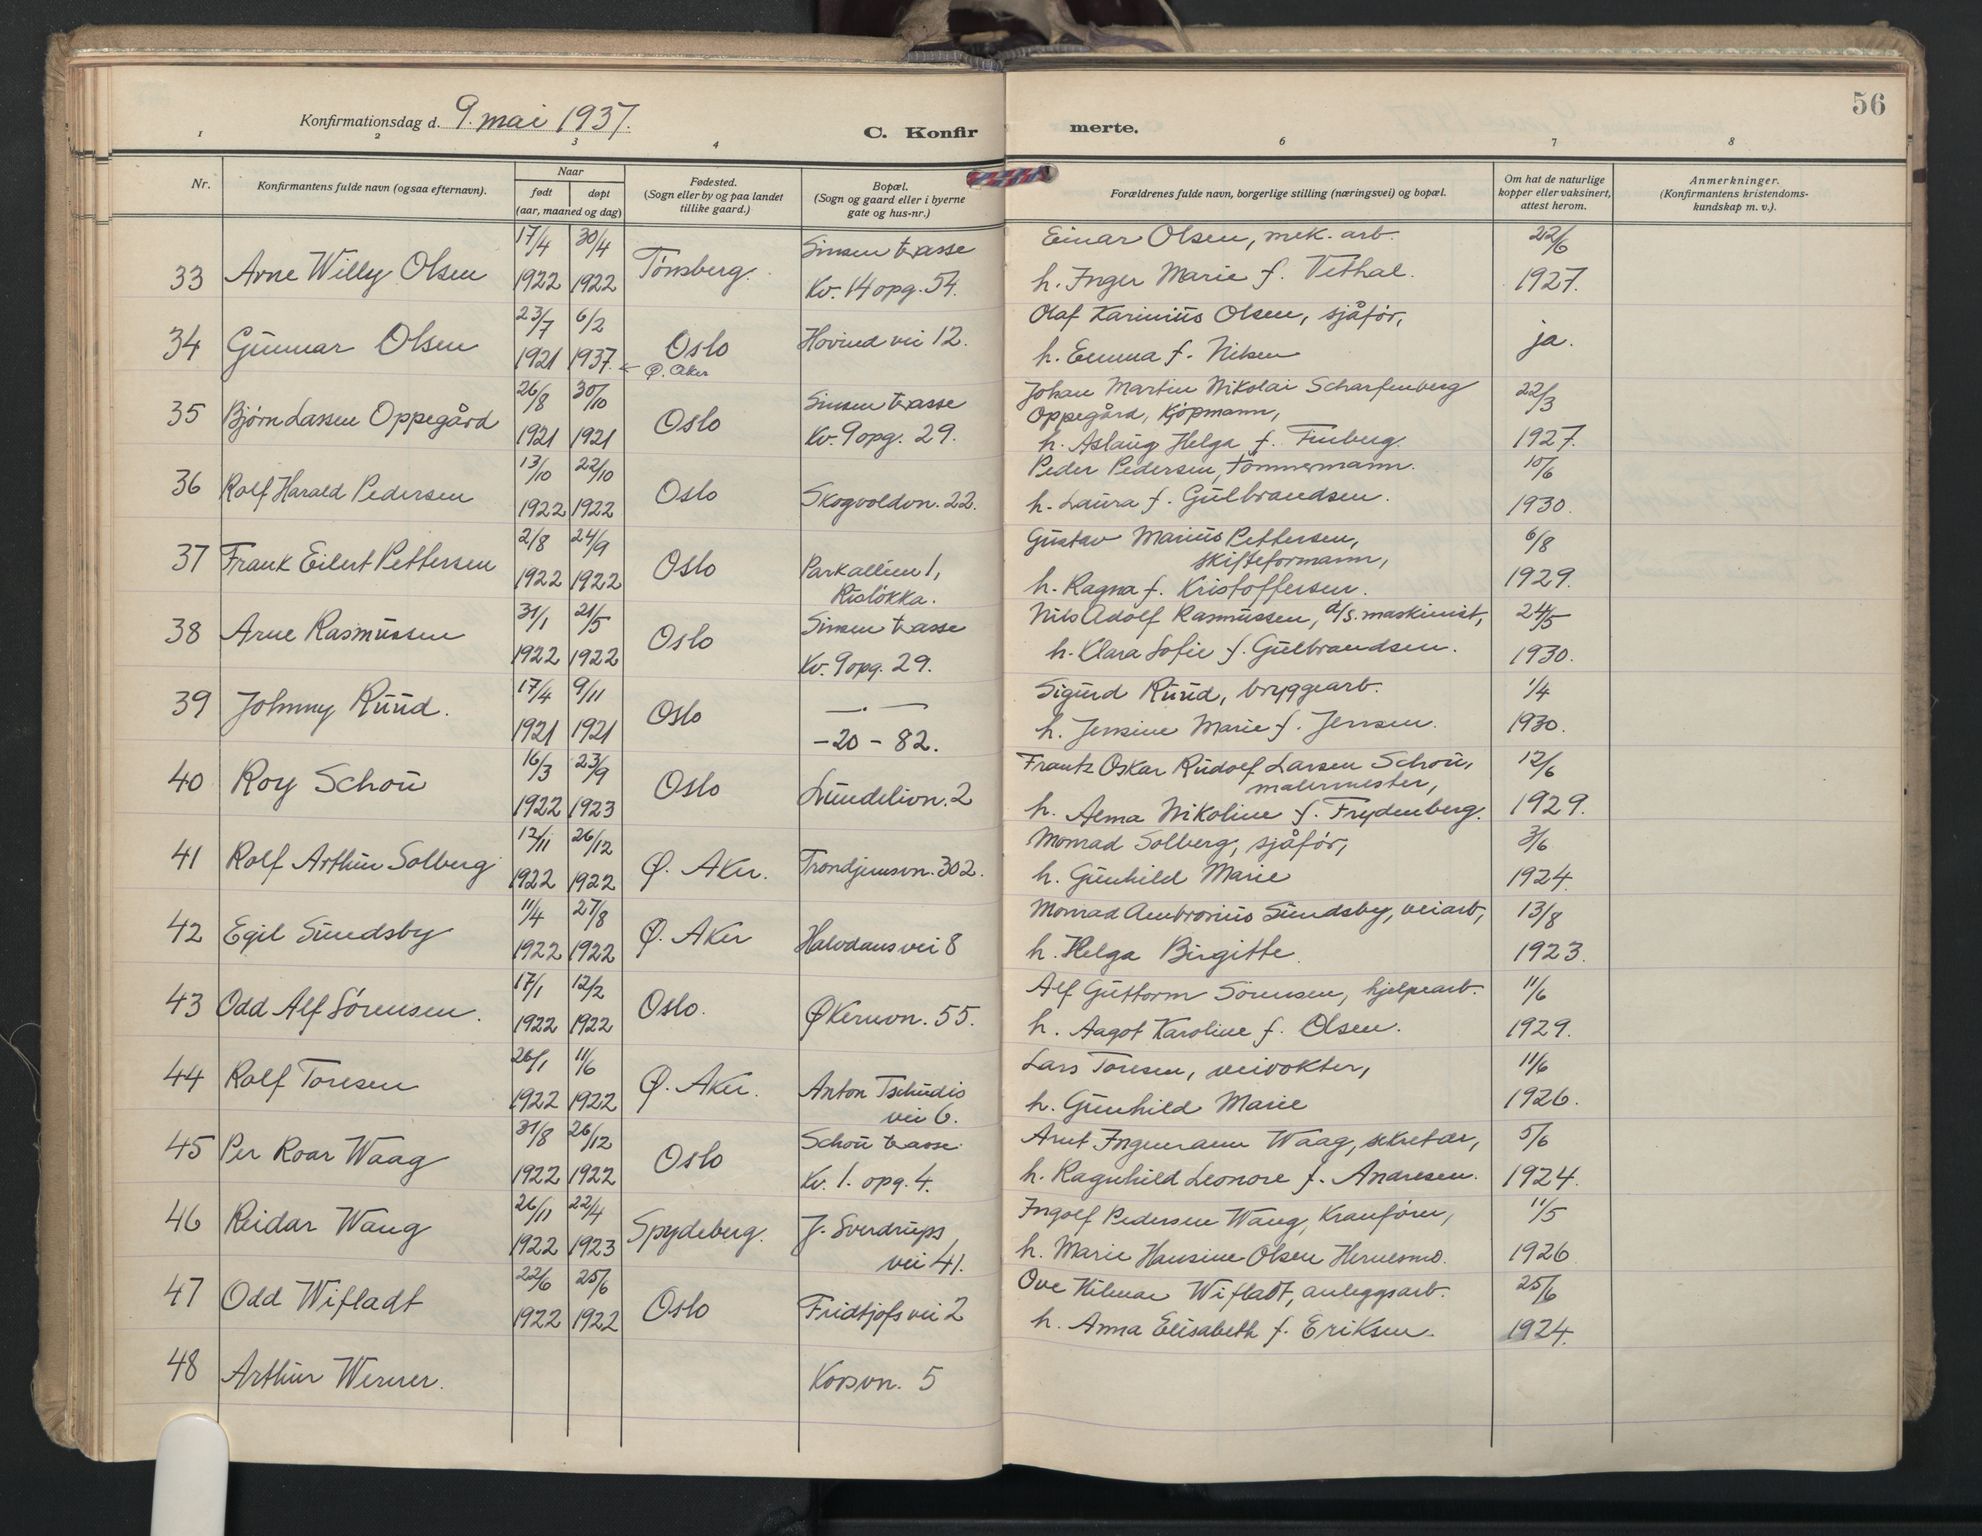 56
Konfirmationsdag d. 9. mai 1937.
C. Konfir merte.
1 2 3 4 6 7 8
Nr.
Konfirmantens fulde navn (ogsaa efternavn).
Naar
født døpt
(aar, maaned og dag)
Fødested.
(Sogn eller by og paa landet
tillike gaard.)
Bopæl.
(Sogn og gaard eller i byerne
gate og hus-nr.)
Forældrenes fulde navn, borgerlige stilling (næringsvei) og bopæl.
Om hat de naturlige
kopper eller vaksinert,
attest herom.
Anmerkninger.
(Konfirmantens kristendoms-
kundskap m. v.).
17/4 30/4 Sinsen terasse Einar Olsen, mek. arb. 22/6
33 Arne Willy Olsen 1922 1922 Tønsberg. Kv. 14 opg. 54. h. Inger Marie f. Vethal. 1927.
23/7 6/2 Olaf Karinius Olsen, sjåför,
34 Gunnar Olsen 1921 1937. Oslo Hovind vei 12. h. Emma f. Nilsen ja.
← Ø. Aker
26/8 30/10 Sinsen terasse Johan Martin Nikolai Scharfenberg 22/3
Oppegård, kjöpmann,
35 Bjørn Lassen Oppegård 1921 1921 Oslo Kv. 9 opg. 29. h. Aslaug Helga f. Finberg. 1927.
13/10 22/10 Peder Pedersen, tömmermann. 10/6
36 Rolf Harald Pedersen 1922 1922 Oslo Skogvoldvn. 22. h. Laura f. Gulbrandsen. 1930.
2/8 24/9 Gustav Marius Pettersen, 6/8
skifteformann,
37 Frank Eilert Pettersen 1922 1922 Oslo Parkallien 1, h. Ragna f. Kristoffersen. 1929.
Risløkka.
31/1 21/5 Sinsen terasse Nils Adolf Rasmussen, d/s. maskinist, 24/5
38 Arne Rasmussen 1922 1922 Oslo Kv. 9 opg. 29. h. Clara Sofie f. Gulbrandsen. 1930.
17/4 9/11 — . — Sigurd Ruud, bryggearb. 1/4
39 Johnny Ruud. 1921 1921 Oslo – 20 – 82. h. Jensine Marie f. Jensen. 1930.
16/3 23/9 Frantz Oskar Rudolf Larsen Schou, 12/6
malermester,
40 Roy Schou 1922 1923 Oslo Lundelivn. 2 h. Alma Nikoline f. Frydenberg. 1929.
12/11 26/12 Monrad Solberg, sjåför, 3/6
41 Rolf Arthur Solberg 1922 1922 Ø. Aker. Trondjemsvn. 302. h. Gunhild Marie 1924.
11/4 27/8 Monrad Ambrosius Sundsby, veiarb, 13/8
42 Egil Sundsby 1922 1922 Ø. Aker Halvdans vei 8 h. Helga Birgitte. 1923.
17/1 12/2 Alf Guttorm Sörensen, hjelpearb. 11/6
43 Odd Alf Sörensen. 1922 1922 Oslo. Økernvn. 55. h. Aagot Karoline f. Olsen. 1929.
26/1 11/6 Lars Toresen, veivokter, 11/6
44 Rolf Toresen 1922 1922 Ø. Aker. Anton Tschudis h. Gunhild Marie 1926.
vei 6.
31/8 26/12 Schou terasse Arnt Ingemann Waag, sekretær, 5/6
45 Per Roar Waag 1922 1922 Oslo Kv. 1. opg. 4. h. Ragnhild Leonore f. Andresen. 1924.
26/11 22/4 Ingolf Pedersen Wang, kranförer, 11/5
46 Reidar Wang 1922 1923 Spydeberg. J. Sverdrups h. Marie Hansine Olsen 1926
vei 41.
22/6 25/6 Ove Hilmar Wifladt, anleggsarb. 25/6
47 Odd Wifladt 1922 1922 Oslo Fridtjofs vei 2 h. Anna Elisabeth f. Eriksen. 1924.
48 Arthur Werner. Korsvn. 5